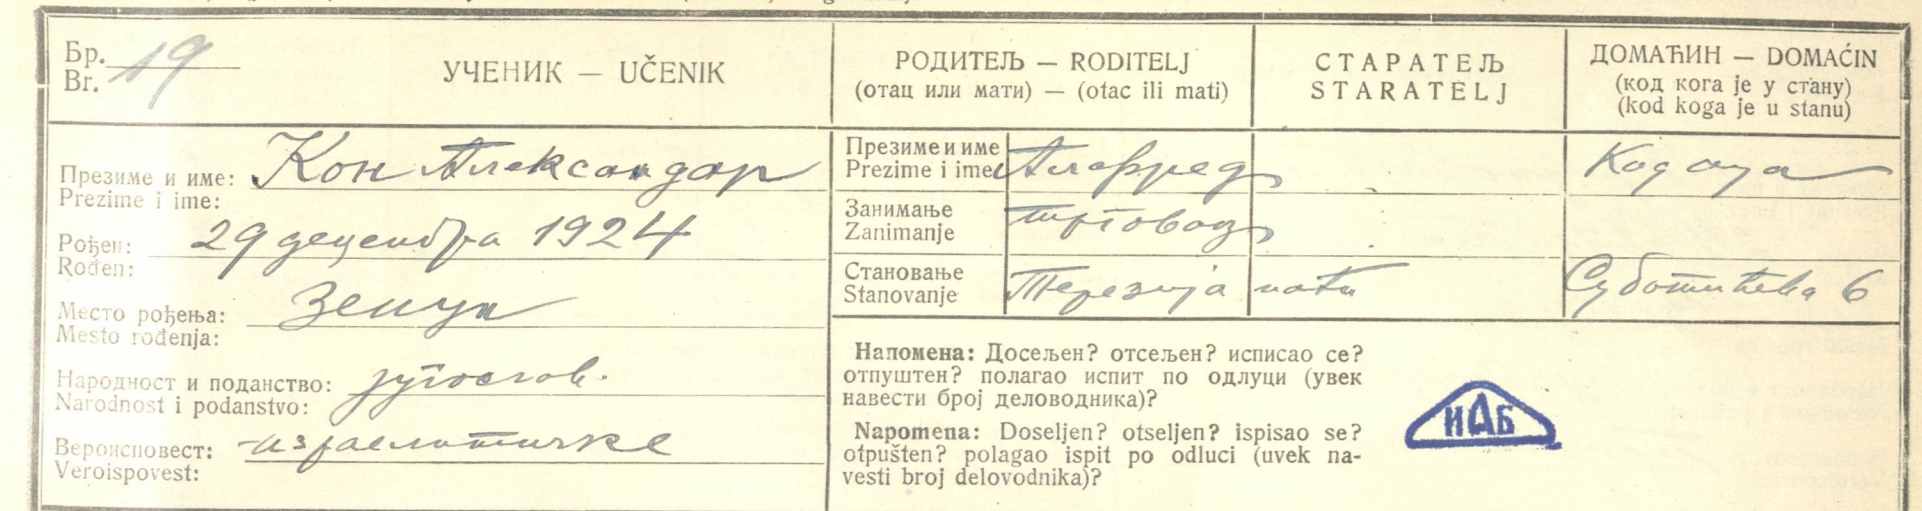 Бр.
Br. 19
УЧЕНИК — UČENIK
РОДИТЕЉ — RODITELJ
(отац или мати) — (otac ili mati)
СТАРАТЕЉ
STARATELJ
ДОМАЋИН — DOMAĆIN
(код кога је у стану)
(kod koga je u stanu)
Презиме и име: Кон Александар
Prezime i ime:
Рођен: 29 децембра 1924
Rođen:
Место рођења: Зеница
Mesto rođenja:
Народност и поданство: југослов.
Narodnost i podanstvo:
Вероисповест: израелитичке
Veroispovest:
Презиме и име
Prezime i ime Алфред
Код оца
Занимање
Zanimanje трговац
Становање
Stanovanje Терезија мати
Суботићева 6
Напомена: Досељен? отсељен? исписао се?
отпуштен? полагао испит по одлуци (увек
навести број деловодника)?
Napomena: Doseljen? otseljen? ispisao se?
otpušten? polagao ispit po odluci (uvek na-
vesti broj delovodnika)?
ИАБ